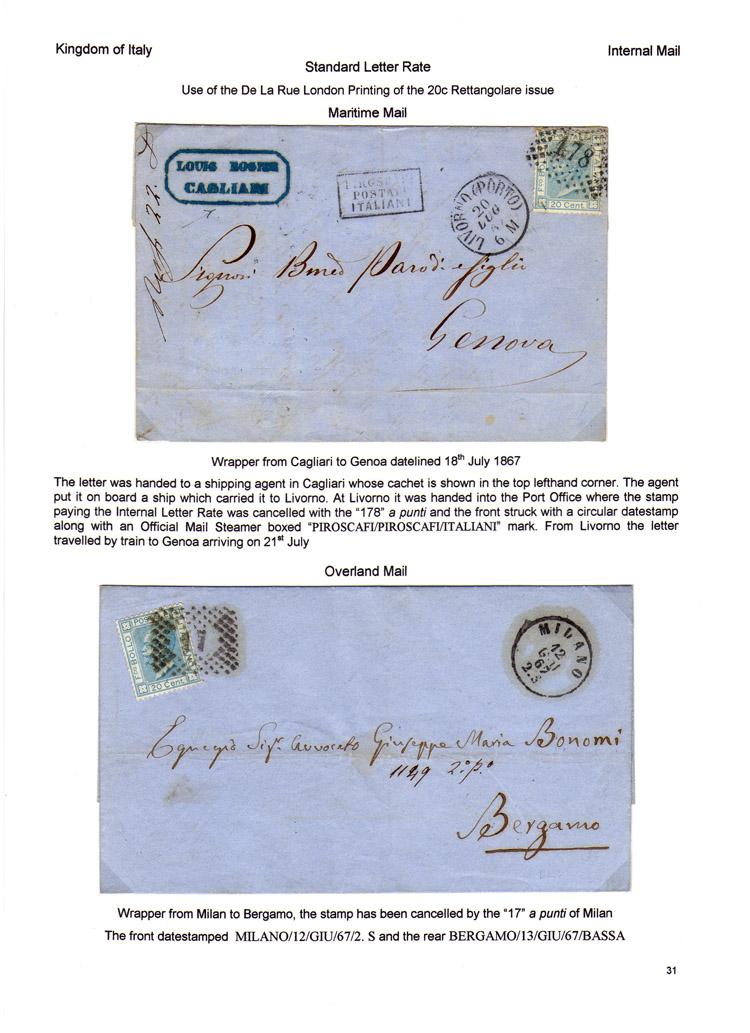 Kingdom of Italy
Internal Mail
Standard Letter Rate
Use of the De La Rue London Printing of the 20c Rettangolare issue
Maritime Mail
LOUIS
CAGLIARI
PIROSCAFI
POSTALI
ITALIANI
LIVORNO (PORTO)
20
LUG
6 M
178
20 Cent.
Signori Bmeo Parodi e figlio
Genova
Wrapper from Cagliari to Genoa datelined 18th July 1867
The letter was handed to a shipping agent in Cagliari whose cachet is shown in the top lefthand corner. The agent
put it on board a ship which carried it to Livorno. At Livorno it was handed into the Port Office where the stamp
paying the Internal Letter Rate was cancelled with the "178" a punti and the front struck with a circular datestamp
along with an Official Mail Steamer boxed "PIROSCAFI/PIROSCAFI/ITALIANI" mark. From Livorno the letter
travelled by train to Genoa arriving on 21st July
Overland Mail
BOLLO
20 Cent.
MILANO
12
GIU
67
2.S
Egregio Sigr. Avvocato Giuseppe Maria Bonomi
1149 2º pº
Bergamo
Wrapper from Milan to Bergamo, the stamp has been cancelled by the "17" a punti of Milan
The front datestamped MILANO/12/GIU/67/2. S and the rear BERGAMO/13/GIU/67/BASSA
31